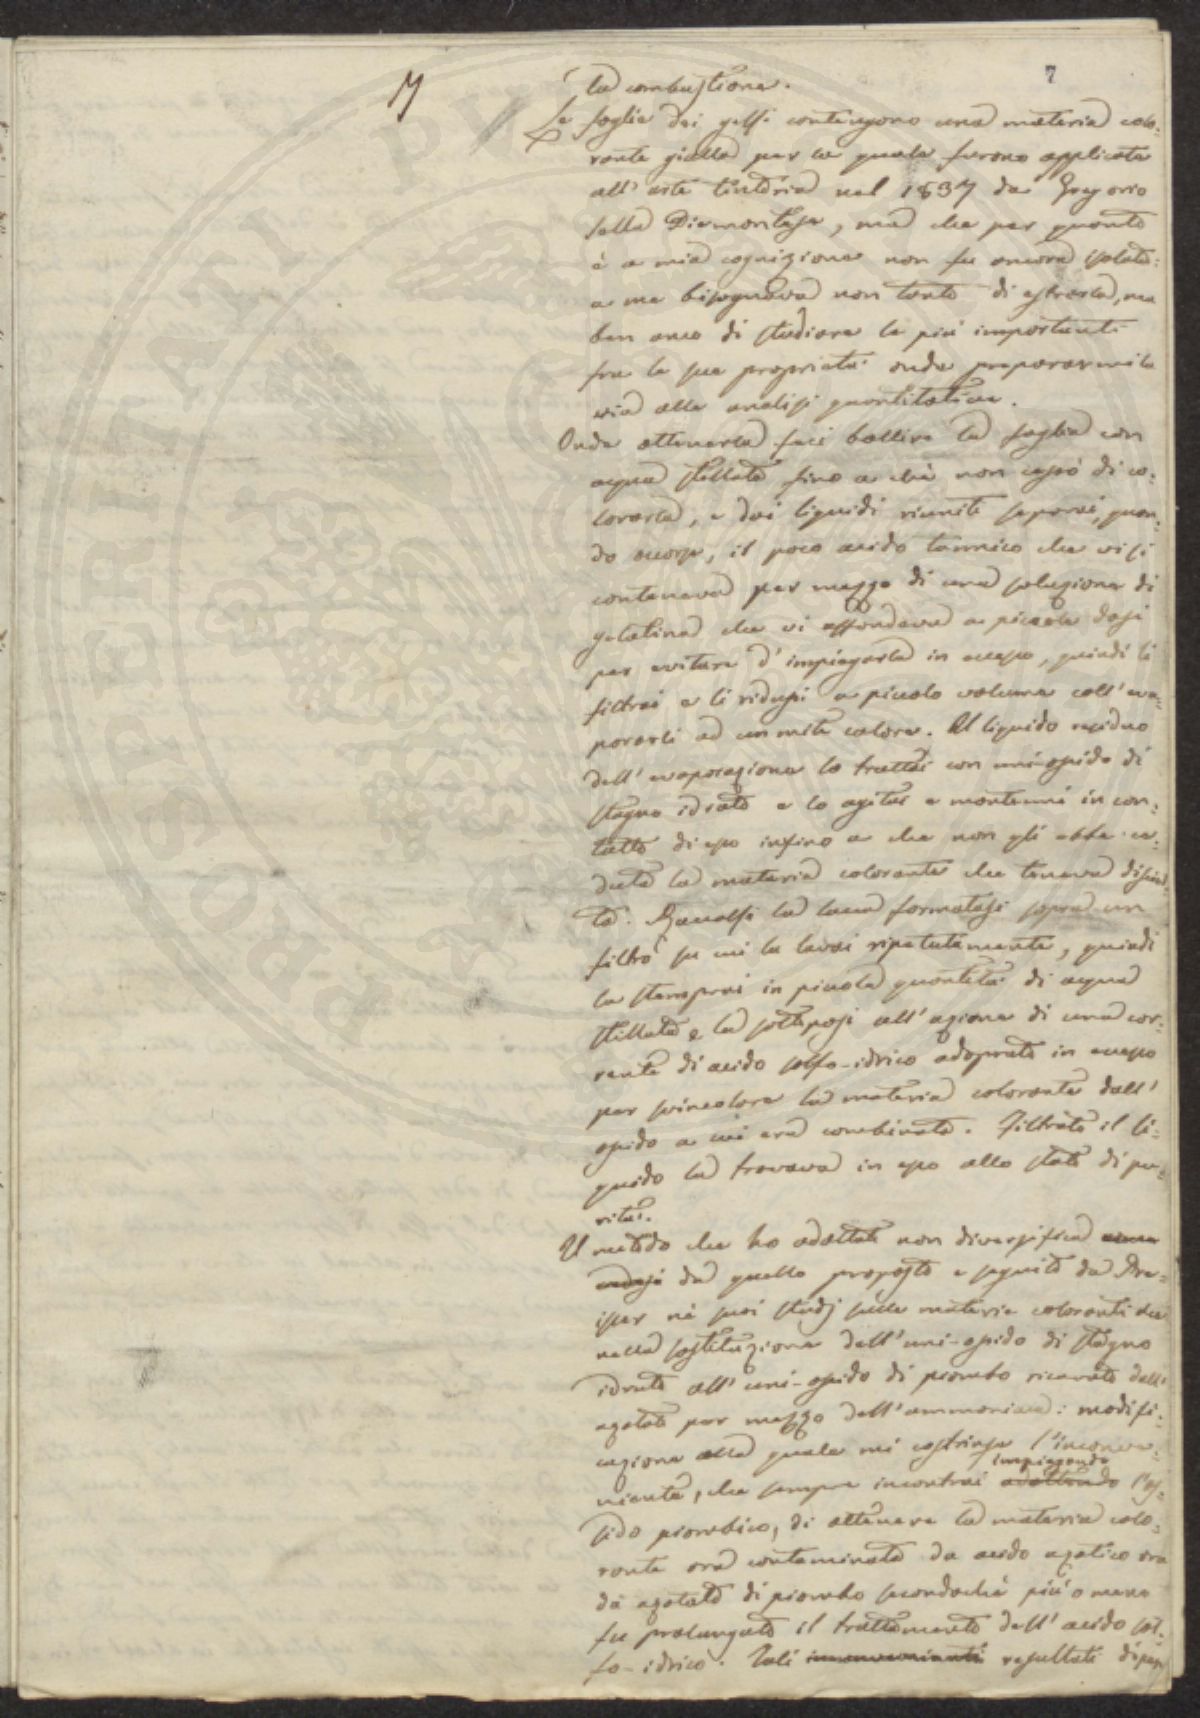 7
M
la combustione.
Le foglie dei gelsi contengono una materia colo-
rante gialla per la quale furono applicate
all'arte tintoria nel 1837 da Gregorio
Sella Piemontese, ma che per quanto
è a mia cognizione non fu ancora isolata:
a me bisognava non tanto di estrarla, ma
ben anco di studiare le più importanti
fra le sue proprietà onde prepararmi la
via alle analisi quantitative.
Onde ottenerla feci bollire la foglia con
acqua stillata fino a chè non cessò di co-
lorarla, e dai liquidi riuniti separai, quan-
do occorse, il poco acido tannico che vi si
conteneva per mezzo di una soluzione di
gelatina che vi affondeva a piccole dosi
per evitare d'impiegarla in eccesso, quindi li
filtrai e li ridussi a piccolo volume coll'eva-
porarli ad un mite calore. Il liquido residuo
dell'evaporazione lo trattai con uni-ossido di
stagno idrato e lo agitai e mantenni in con-
tatto di esso infino a che non gli ebbe ce-
duta la materia colorante che teneva disciol-
ta. Raccolsi la lacca formatasi sopra un
filtro su cui la lavai ripetutamente, quindi
la stemprai in piccola quantità di acqua
stillata e la sottoposi all'azione di una cor-
rente di acido solfo-idrico adoprato in eccesso
per svincolare la materia colorante dall'
ossido a cui era combinata. Filtrato il li-
quido la trovava in esso allo stato di pu-
rità.
Il metodo che ho adottato non diversifica
da quello proposto e seguito da Pre-
isser nè suoi studj sulle materie coloranti che
nella sostituzione dell'uni-ossido di stagno
idrato all'uni-ossido di piombo ricavato dall'
azotato per mezzo dell'ammoniaca: modifi-
cazione alla quale mi costrinse l'inconve-
niente, che sempre incontrai adottando impiegando l'os-
sido piombico, di ottenere la materia colo-
rante ora contaminata da acido azotico ora
da azotato di piombo secondochè più o meno
fu prolungato il trattamento dell'acido sol-
fo-idrico. Tali inconvenienti resultati dipen